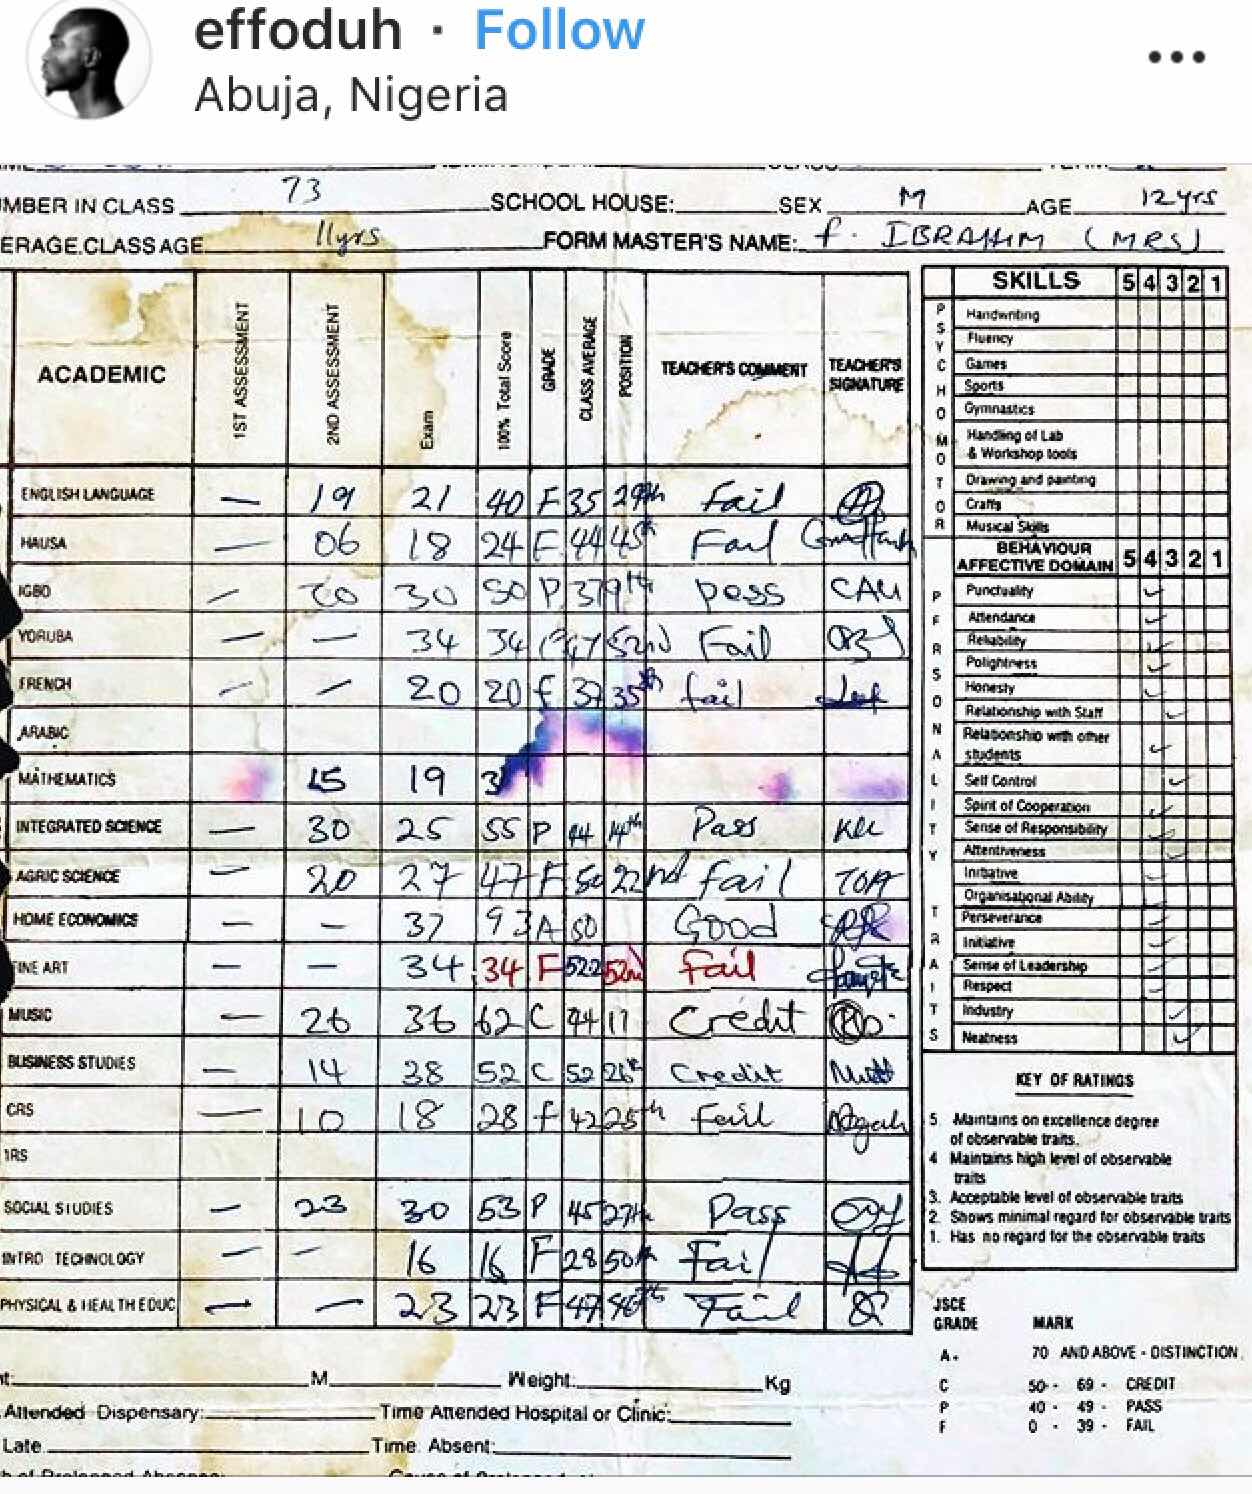 effoduh · Follow
Abuja, Nigeria
UMBER IN CLASS 73 SCHOOL HOUSE: SEX M AGE 12 yrs
ERAGE.CLASS AGE 11yrs FORM MASTER'S NAME: f. IBRAHIM (MRS)
ACADEMIC 1ST ASSESSMENT 2ND ASSESSMENT Exam 100% Total Score GRADE CLASS AVERAGE POSITION TEACHER'S COMMENT TEACHER'S SIGNATURE
ENGLISH LANGUAGE — 19 21 40 F 35 29th Fail
HAUSA — 06 18 24 F 44 45th Fail
IGBO — 20 30 50 P 37 9th pass CAU
YORUBA — — 34 34 52nd Fail
FRENCH — — 20 20 f 37 35th fail
ARABIC
MATHEMATICS 15 19 3
INTEGRATED SCIENCE — 30 25 55 P 44 14th Pass
AGRIC SCIENCE — 20 27 47 F 50 22nd fail
HOME ECONOMICS — — 37 93 A 50 Good
FINE ART — — 34 34 F 52.2 52nd fail
MUSIC — 26 36 62 C 44 11 Credit
BUSINESS STUDIES — 14 38 52 C 52 26th Credit
CRS — 10 18 28 f 42 25th fail
1RS
SOCIAL STUDIES — 23 30 53 P 45 27th Pass
INTRO TECHNOLOGY — — 16 16 F 28 50th Fail
PHYSICAL & HEALTH EDUC — — 23 23 F Fail
SKILLS 5 4 3 2 1
PSYCHOMOTOR
Handwriting
Fluency
Games
Sports
Gymnastics
Handling of Lab
& Workshop tools
Drawing and painting
Crafts
Musical Skills
BEHAVIOUR
AFFECTIVE DOMAIN 5 4 3 2 1
PERSONALITY TRAITS
Punctuality
Attendance
Reliability
Polightness
Honesty
Relationship with Staff
Relationship with other
students
Self Control
Spirit of Cooperation
Sense of Responsibility
Attentiveness
Initiative
Organisational Ability
Perseverance
Initiative
Sense of Leadership
Respect
Industry
Neatness
KEY OF RATINGS
5. Maintains on excellence degree
of observable traits.
4 Maintains high level of observable
traits
3. Acceptable level of observable traits
2. Shows minimal regard for observable traits
1. Has no regard for the observable traits
JSCE
GRADE MARK
A. 70 AND ABOVE - DISTINCTION
C 50 - 69 - CREDIT
P 40 - 49 - PASS
F 0 - 39 - FAIL
M Weight: Kg
Attended Dispensary: Time Attended Hospital or Clinic:
Late Time Absent: